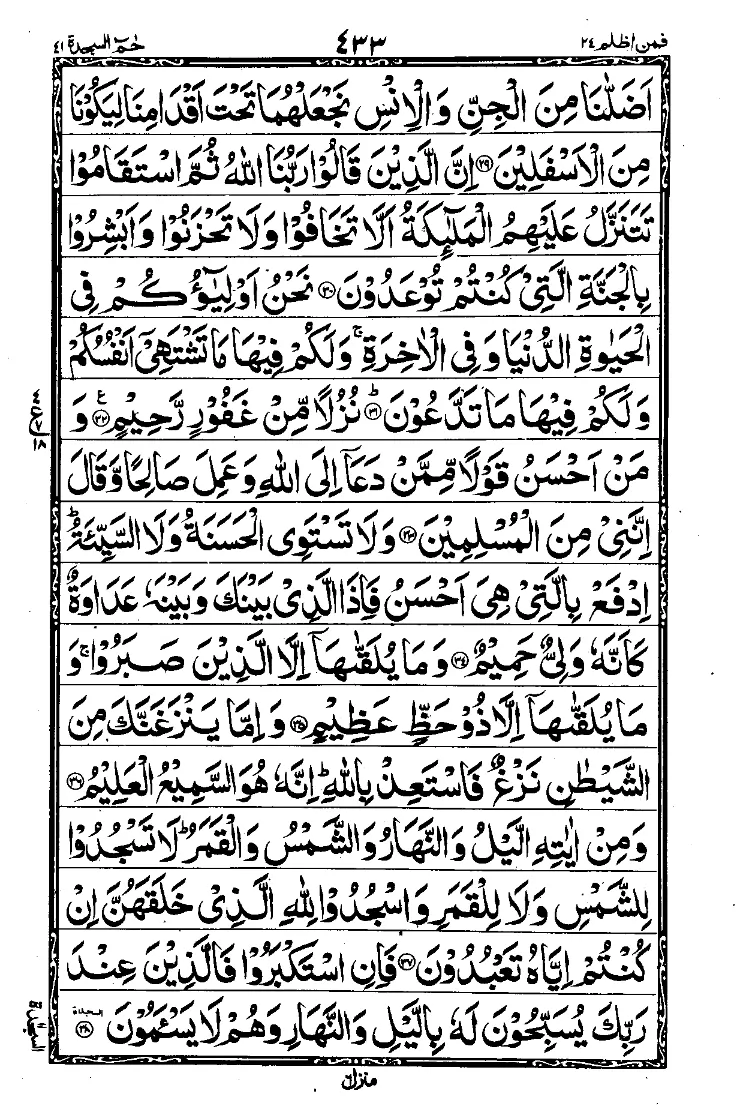 فمن اظلم ٢٤ ٤٣٣ حٰمٓ السجدة ٤١
اَضَلّٰنَا مِنَ الْجِنِّ وَالْاِنْسِ نَجْعَلْهُمَا تَحْتَ اَقْدَامِنَا لِيَكُوْنَا
مِنَ الْاَسْفَلِيْنَ ﴿۲۹﴾ اِنَّ الَّذِيْنَ قَالُوْا رَبُّنَا اللّٰهُ ثُمَّ اسْتَقَامُوْا
تَتَنَزَّلُ عَلَيْهِمُ الْمَلٰٓئِكَةُ اَلَّا تَخَافُوْا وَلَا تَحْزَنُوْا وَاَبْشِرُوْا
بِالْجَنَّةِ الَّتِيْ كُنْتُمْ تُوْعَدُوْنَ ﴿۳۰﴾ نَحْنُ اَوْلِيٰٓؤُكُمْ فِي
الْحَيٰوةِ الدُّنْيَا وَفِي الْاٰخِرَةِ ۚ وَلَكُمْ فِيْهَا مَا تَشْتَهِيْٓ اَنْفُسُكُمْ
وَلَكُمْ فِيْهَا مَا تَدَّعُوْنَ ﴿۳۱﴾ ؕ نُزُلًا مِّنْ غَفُوْرٍ رَّحِيْمٍ ﴿۳۲﴾ ع وَ
مَنْ اَحْسَنُ قَوْلًا مِّمَّنْ دَعَآ اِلَى اللّٰهِ وَعَمِلَ صَالِحًا وَّقَالَ
اِنَّنِيْ مِنَ الْمُسْلِمِيْنَ ﴿۳۳﴾ وَلَا تَسْتَوِي الْحَسَنَةُ وَلَا السَّيِّئَةُ ؕ
اِدْفَعْ بِالَّتِيْ هِيَ اَحْسَنُ فَاِذَا الَّذِيْ بَيْنَكَ وَبَيْنَهٗ عَدَاوَةٌ
كَاَنَّهٗ وَلِيٌّ حَمِيْمٌ ﴿۳۴﴾ وَمَا يُلَقّٰىهَآ اِلَّا الَّذِيْنَ صَبَرُوْا ۚ وَ
مَا يُلَقّٰىهَآ اِلَّا ذُوْ حَظٍّ عَظِيْمٍ ﴿۳۵﴾ وَاِمَّا يَنْزَغَنَّكَ مِنَ
الشَّيْطٰنِ نَزْغٌ فَاسْتَعِذْ بِاللّٰهِ ؕ اِنَّهٗ هُوَ السَّمِيْعُ الْعَلِيْمُ ﴿۳۶﴾
وَمِنْ اٰيٰتِهِ الَّيْلُ وَالنَّهَارُ وَالشَّمْسُ وَالْقَمَرُ ؕ لَا تَسْجُدُوْا
لِلشَّمْسِ وَلَا لِلْقَمَرِ وَاسْجُدُوْا لِلّٰهِ الَّذِيْ خَلَقَهُنَّ اِنْ
كُنْتُمْ اِيَّاهُ تَعْبُدُوْنَ ﴿۳۷﴾ فَاِنِ اسْتَكْبَرُوْا فَالَّذِيْنَ عِنْدَ
رَبِّكَ يُسَبِّحُوْنَ لَهٗ بِالَّيْلِ وَالنَّهَارِ وَهُمْ لَا يَسْئَمُوْنَ ﴿۳۸﴾ السجدة